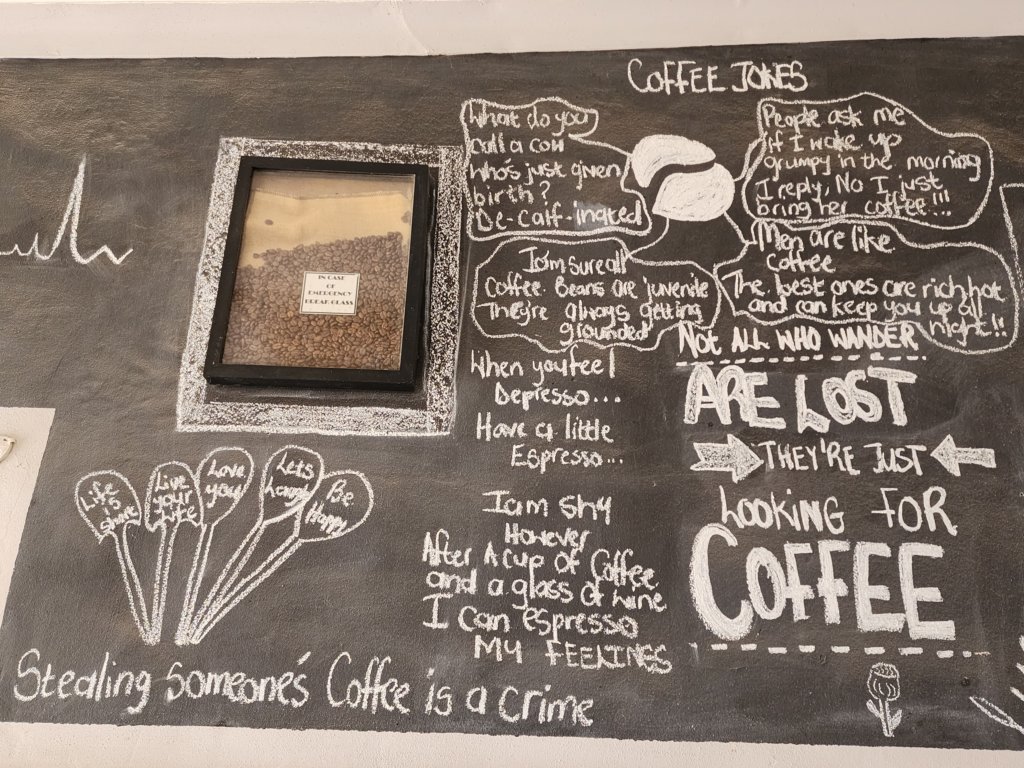 COFFEE JOKES
What do you
call a cow
who's just given
birth?
De-calf-inated
People ask me
if I wake up
grumpy in the morning
I reply, No I just
bring her coffee!!!
I'm sure all
Coffee Beans are juvenile
They're always getting
grounded
Men are like
coffee
The best ones are rich, hot
and can keep you up all
night!!
IN CASE
OF
EMERGENCY
BREAK GLASS
When you feel
Depresso...
Have a little
Espresso...
NOT ALL WHO WANDER
ARE LOST
THEY'RE JUST
LOOKING FOR
COFFEE
I am shy
However
After A cup of Coffee
and a glass of wine
I can espresso
MY FEELINGS
Life
is
Live
your
life
Love
you
Lets
Be
Happy
Stealing someone's Coffee is a crime